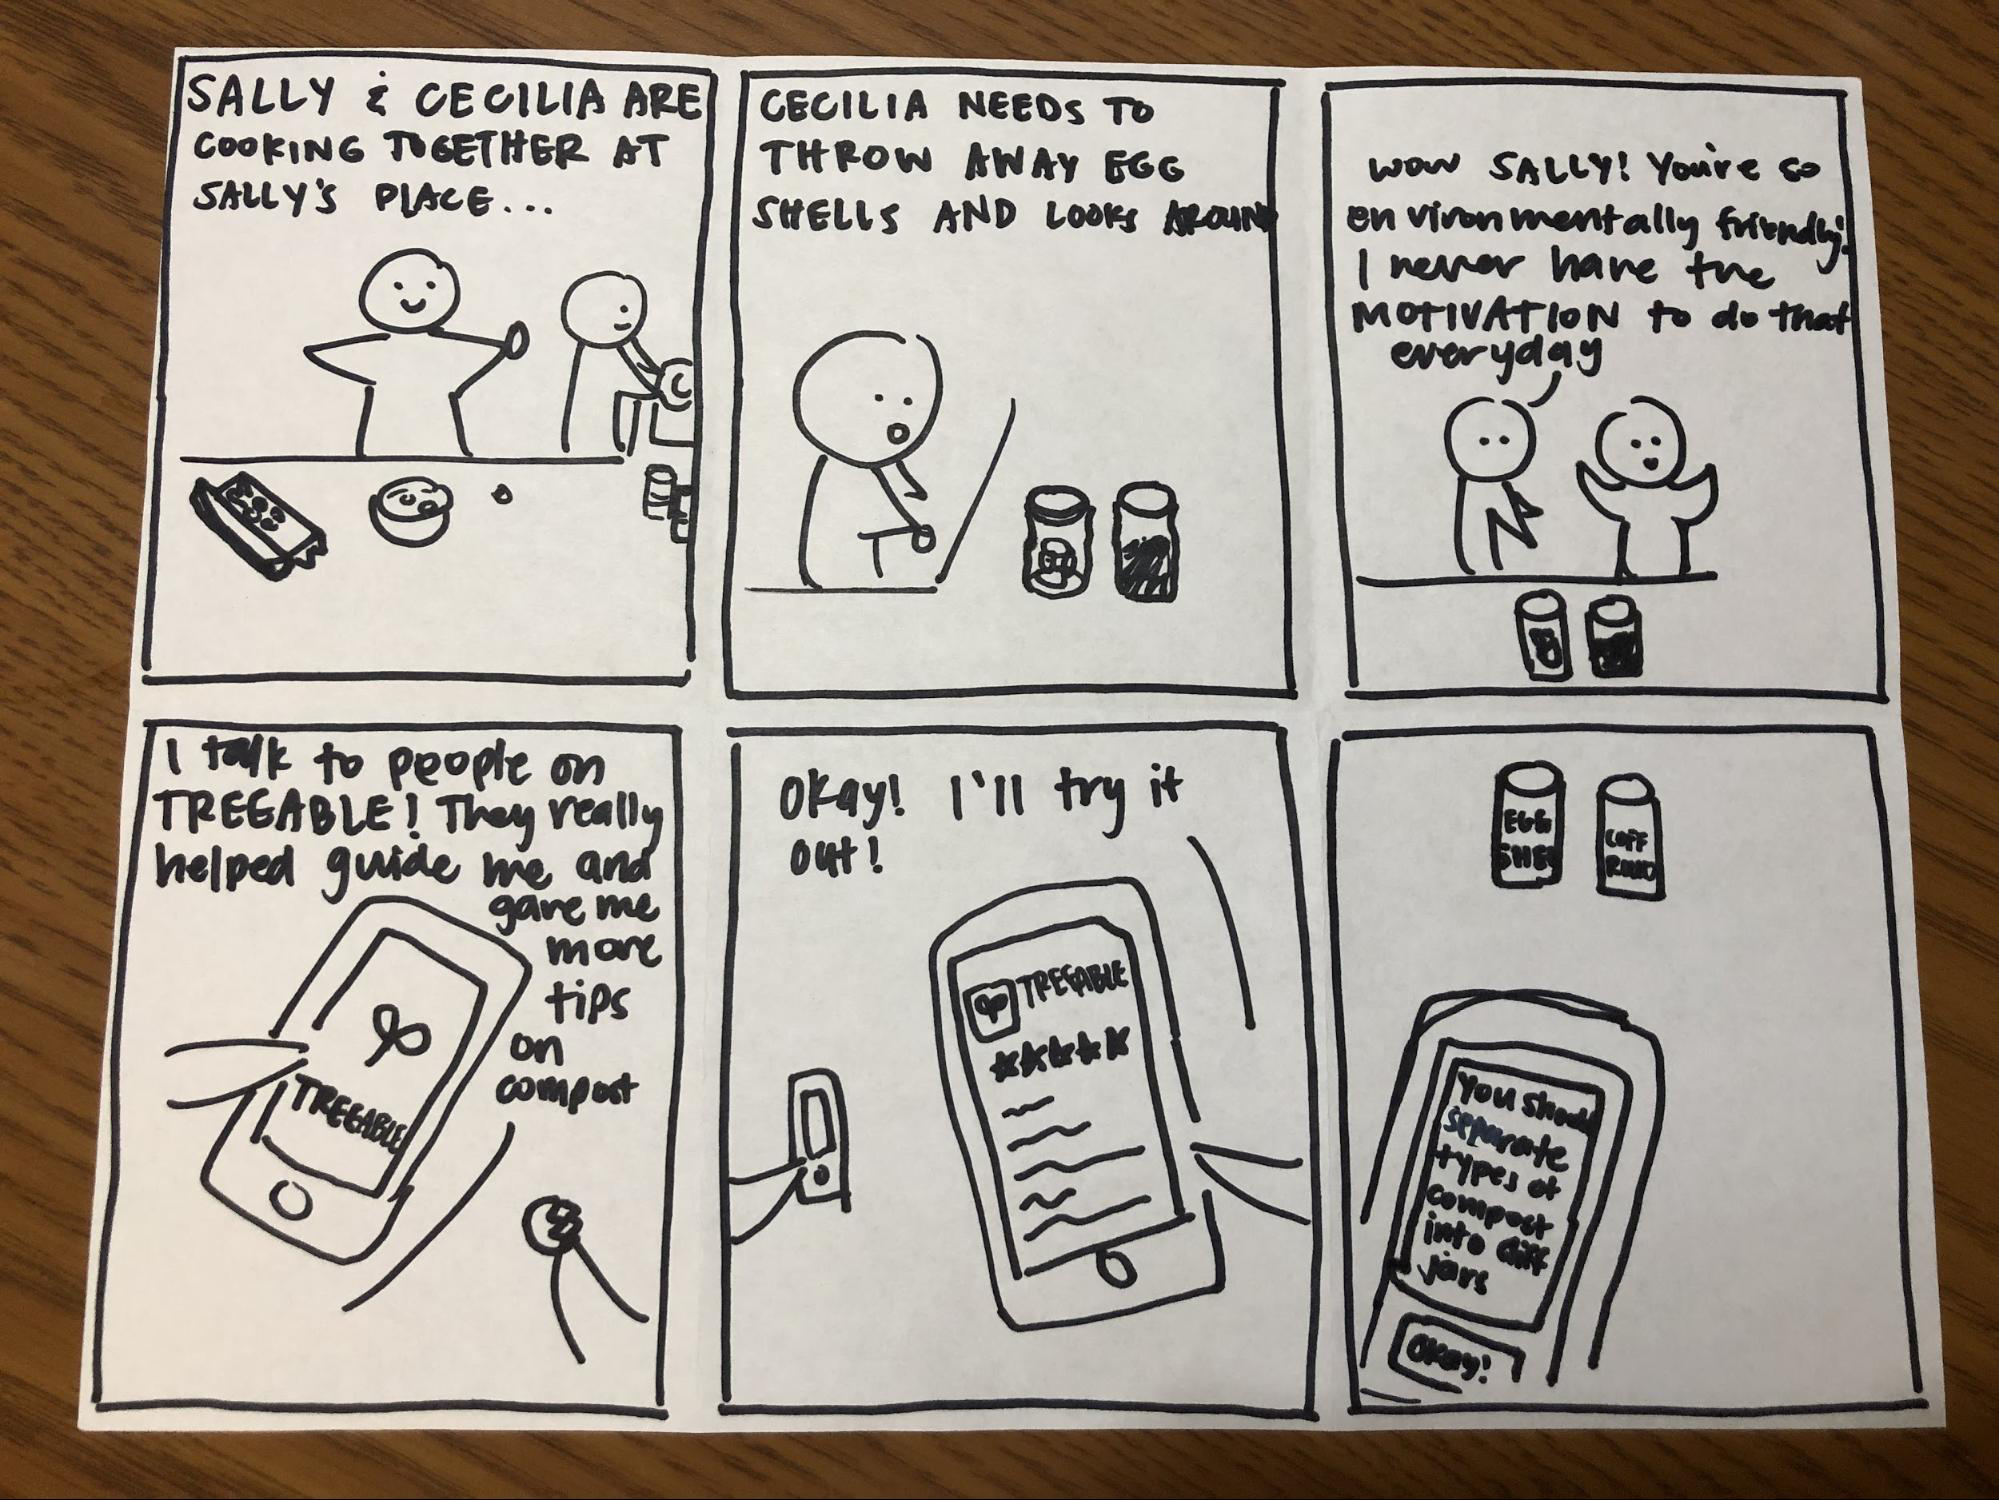 SALLY & CECILIA ARE
COOKING TOGETHER AT
SALLY'S PLACE...
CECILIA NEEDS TO
THROW AWAY EGG
SHELLS AND LOOKS AROUND
WOW SALLY! You're so
environmentally friendly!
I never have the
MOTIVATION to do that
everyday
I talk to people on
TREEABLE! They really
helped guide me and
gave me
more
tips
on
compost
TREEABLE
Okay! I'll try it
out!
TREEABLE
EGG
SHEL
COFF
You should
separate
types of
compost
into diff
jars
Okay!